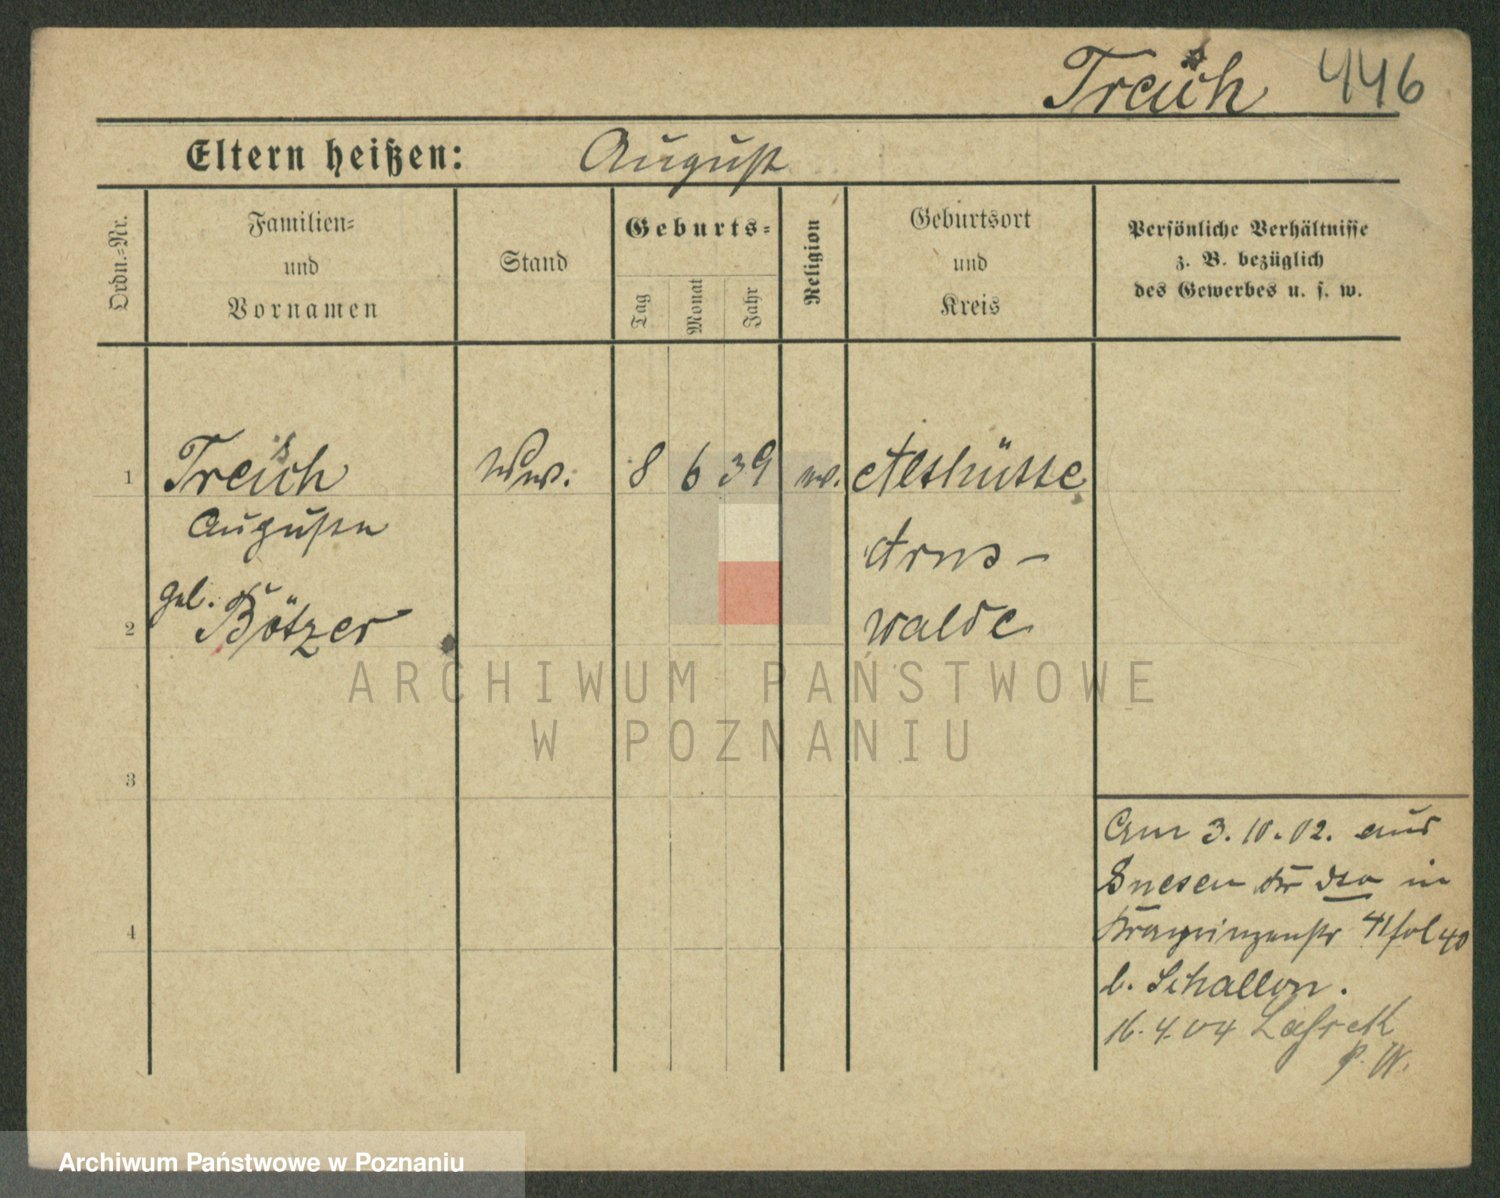 Treich 446
Eltern heißen: August
Ordn.-Nr.
Familien-
und
Vornamen
Stand
Geburts-
Tag
Monat
Jahr
Religion
Geburtsort
und
Kreis
Persönliche Verhältnisse
z. B. bezüglich
des Gewerbes u. s. w.
1 Treich Ww. 8 6 39 ev. Althütte
Auguste
Arns-
geb.
2 Bötzer walde
ARCHIWUM PAŃSTWOWE
W POZNANIU
3
Am 3.10.02. aus
Gnesen in
4
Kronprinzenstr 41 fol 40
b. Schallon.
16.4.04
P. W.
Archiwum Państwowe w Poznaniu